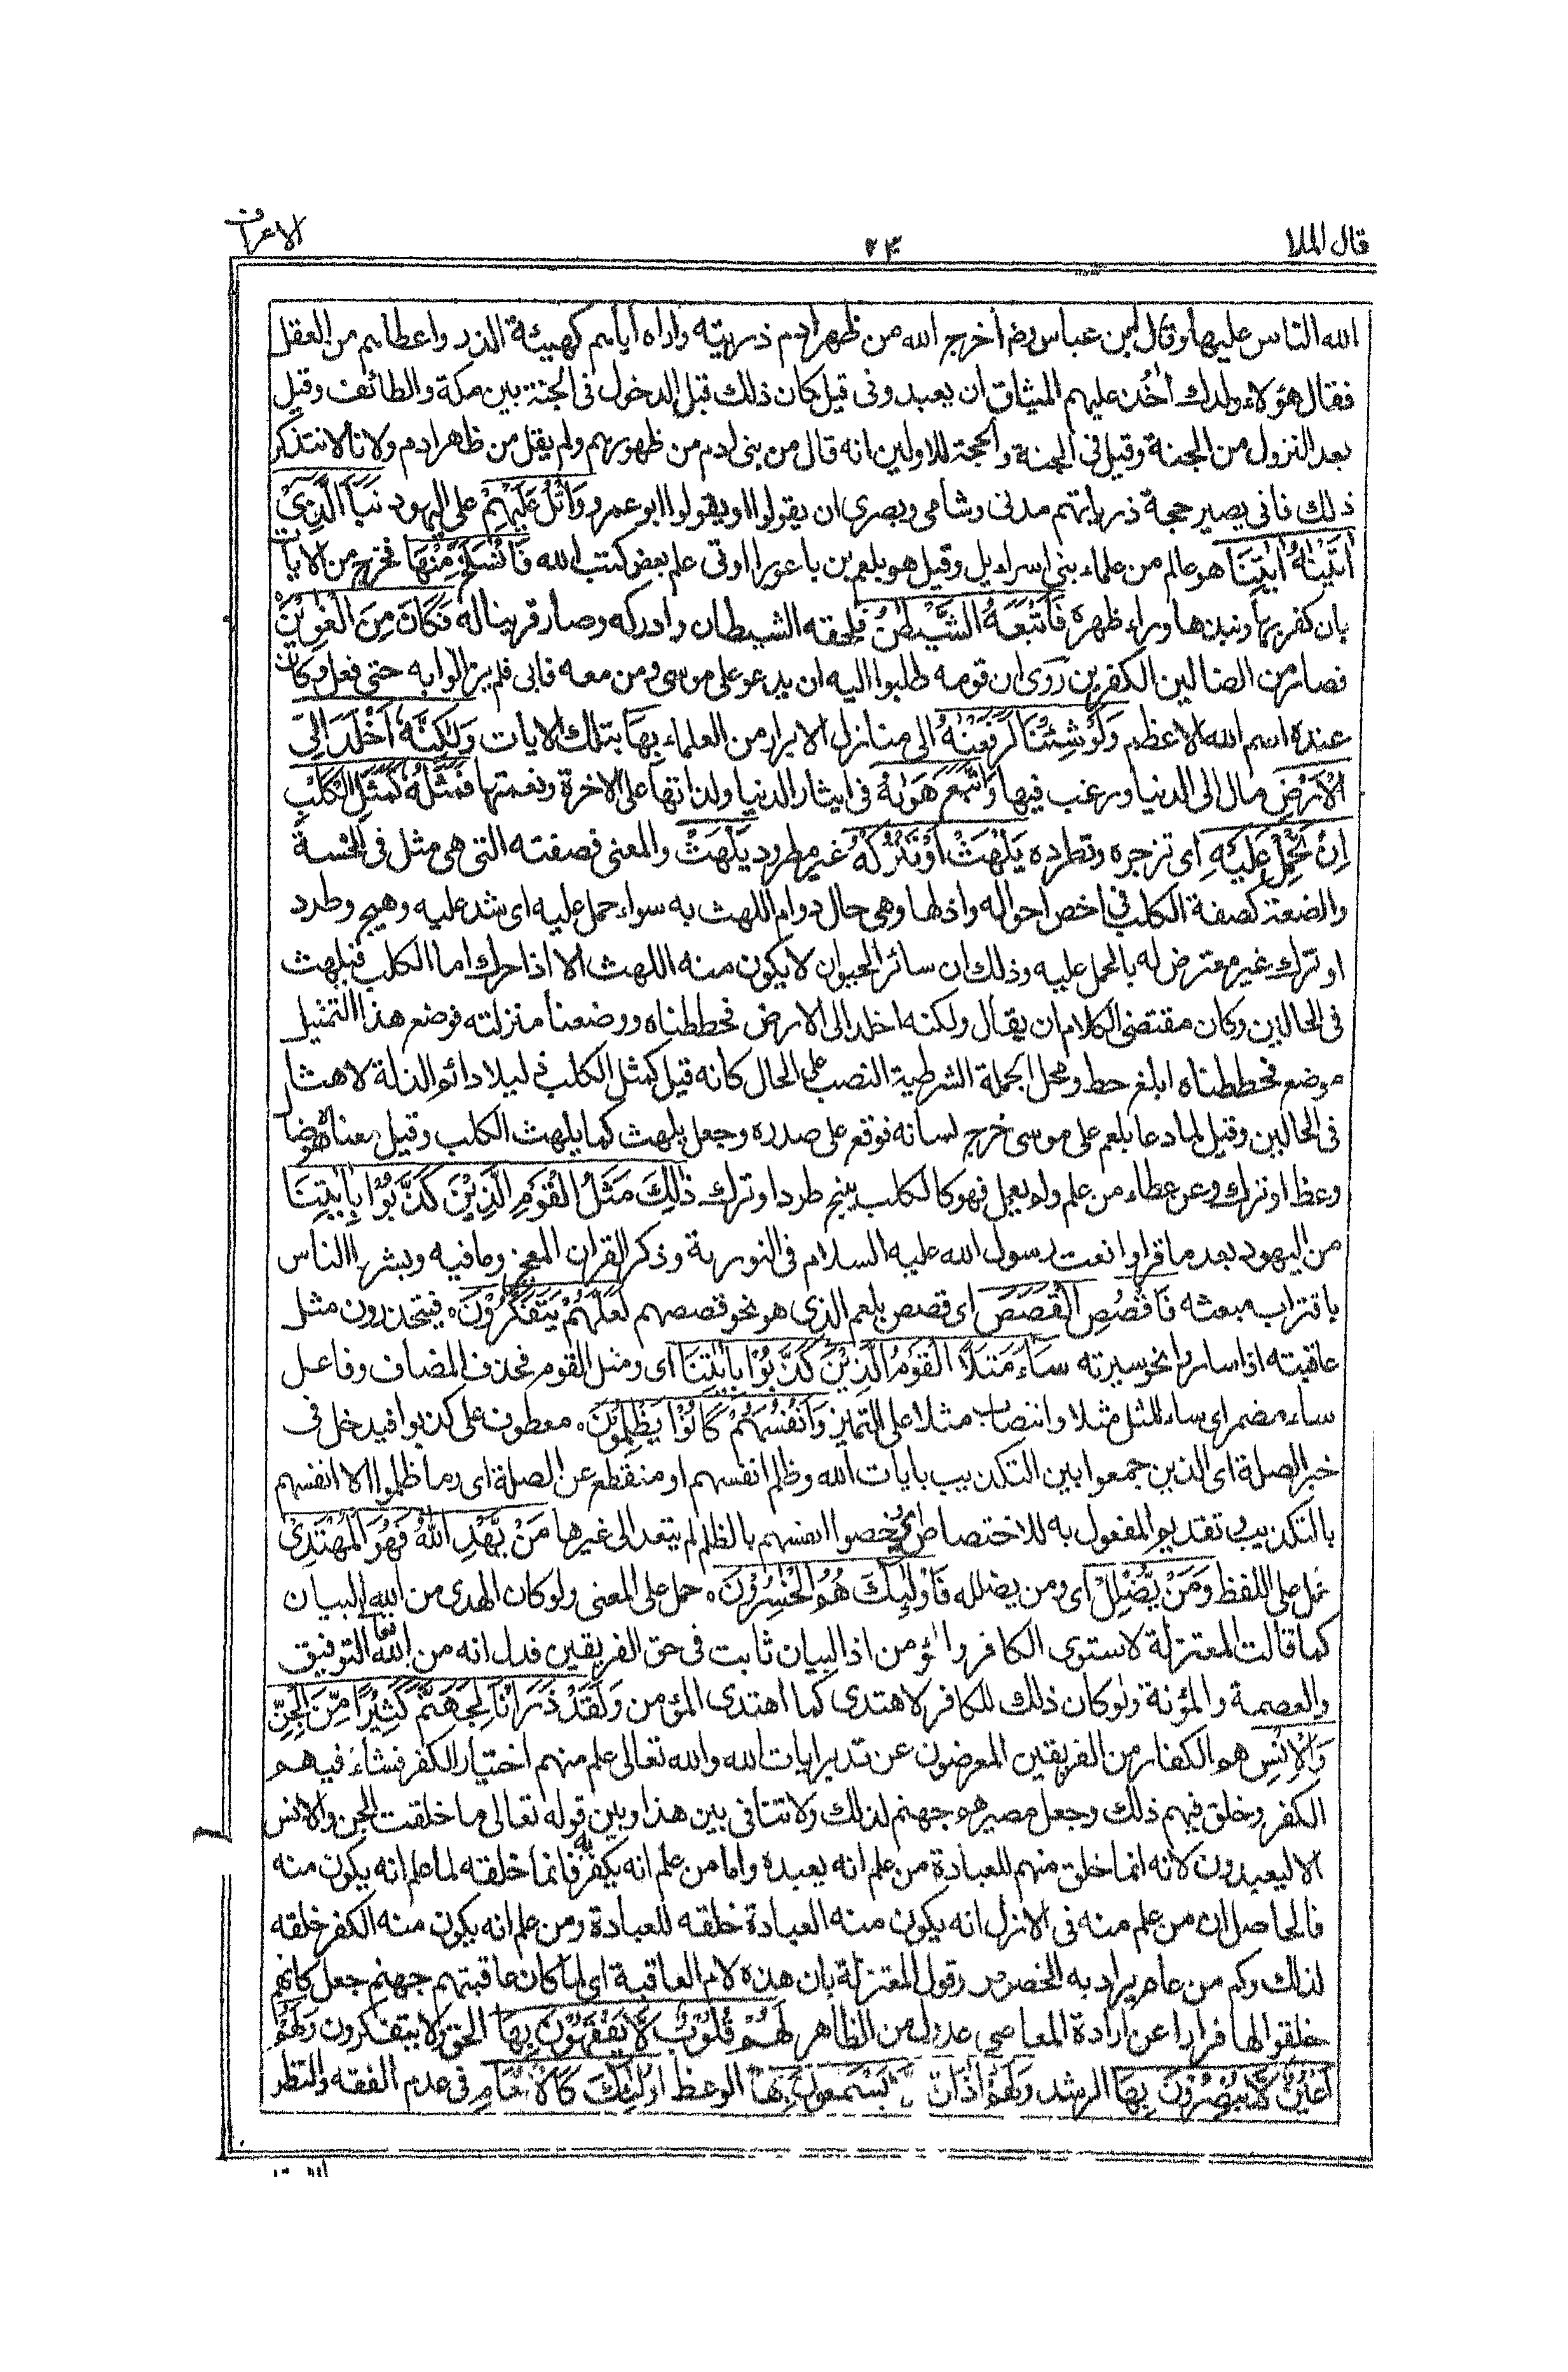 قال الملا ٢٣ الاعراف
الله الناس عليها وقال ابن عباس رضـ اخرج الله من ظهر ادم ذريته واراه اياهم كهيئة الذر واعطاهم من العقل
فقال هؤلاء ولدك اٰخُذ عليهم الميثاق ان يعبدونى قيل كان ذلك قبل الدخول فى الجنة بين مكة والطائف وقيل
بعد النزول من الجنة وقيل فى الجنة والحجة للاولين انه قال من بنى ادم من ظهورهم ولم يقل من ظهر ادم ولانا لا نتذكر
ذلك فانى يصير حجة ذرياتهم مدنى وشامى وبصرى ان يقولوا او يقولوا ابو عمرو وَاتْلُ عَلَيْهِمْ على اليهود نَبَأَ الَّذِىْ
اٰتَيْنٰهُ اٰيٰتِنَا هو عالم من علماء بنى اسراءيل وقيل هو بلعم بن باعورا اوتى علم بعض كتب الله فَانْسَلَخَ مِنْهَا فخرج من الايات
بان كفر بها ونبذها وراء ظهره فَاَتْبَعَهُ الشَّيْطٰنُ فلحقه الشيطان وادركه وصار قرينا له فَكَانَ مِنَ الْغٰوِيْنَ
فصار من الضالين الكفرين روى ان قومه طلبوا اليه ان يدعو على موسى ومن معه فابى فلم يزالوا به حتى فعل وكان
عنده اسم الله الاعظم وَلَوْ شِئْنَا لَرَفَعْنٰهُ الى منازل الابرار من العلماء بِهَا بتلك الايات وَلٰكِنَّهٗ اَخْلَدَ اِلَى
الْاَرْضِ مال الى الدنيا ورغب فيها وَاتَّبَعَ هَوٰىهُ فى ايثار الدنيا ولذاتها على الاخرة ونعمتها فَمَثَلُهٗ كَمَثَلِ الْكَلْبِ
اِنْ تَحْمِلْ عَلَيْهِ اى تزجره وتطرده يَلْهَثْ اَوْ تَتْرُكْهُ غير مطرود يَلْهَثْ والمعنى فصفته التى هى مثل فى الخسة
والضعة كصفة الكلب فى اخص احواله واذلها وهى حال دوام اللهث به سواء حمل عليه اى شد عليه وهيج وطرد
او ترك غير معترض له بالحمل عليه وذلك ان سائر الحيوان لا يكون منه اللهث الا اذا حرك اما الكلب فيلهث
فى الحالين وكان مقتضى الكلام ان يقال ولكنه اخلد الى الارض فحططناه ووضعنا منزلته فوضع هذا التمثيل
موضع فحططناه ابلغ حط ومحل الجملة الشرطية النصب على الحال كانه قيل كمثل الكلب ذليلا دائم الذلة لاهثا
فى الحالين وقيل لما دعا بلعم على موسى خرج لسانه فوقع على صدره وجعل يلهث كما يلهث الكلب وقيل معناه هو ضال
وعظ او ترك وعن عطاء من علم ولم يعمل فهو كالكلب ينبح طرد او ترك ذٰلِكَ مَثَلُ الْقَوْمِ الَّذِيْنَ كَذَّبُوْا بِاٰيٰتِنَا
من اليهود بعد ما قراوا نعت رسول الله عليه السلام فى التورىة وذكر القران المعجز وما فيه وبشروا الناس
باقتراب مبعثه فَاقْصُصِ الْقَصَصَ اى قصص بلعم الذى هو نحو قصصهم لَعَلَّهُمْ يَتَفَكَّرُوْنَ، فيحذرون مثل
عاقبته اذا ساروا نحو سيرته سَاءَ مَثَلًا ۨالْقَوْمُ الَّذِيْنَ كَذَّبُوْا بِاٰيٰتِنَا اى ومثل القوم فحذف المضاف وفاعل
ساء مضمر اى ساء المثل مثلا وانتصاب مثلا على التمييز وَاَنْفُسَهُمْ كَانُوْا يَظْلِمُوْنَ، معطوف على كذبوا فيدخل فى
خبر الصلة اى الذين جمعوا بين التكذيب بايات الله وظلم انفسهم او منقطع عن الصلة اى وما ظلموا الا انفسهم
بالتكذيب وتقديم المفعول به للاختصاص اى وخصوا انفسهم بالظلم لم يتعد الى غيرها مَنْ يَّهْدِ اللهُ فَهُوَ الْمُهْتَدِىْ
حمل على اللفظ وَمَنْ يُّضْلِلْ اى ومن يضلله فَاُولٰئِكَ هُمُ الْخٰسِرُوْنَ، حمل على المعنى ولو كان الهدى من الله البيان
كما قالت المعتزلة لاستوى الكافر والمؤمن اذ البيان ثابت فى حق الفريقين فدل انه من الله تعا التوفيق
والعصمة والمؤنة ولو كان ذلك للكافر لاهتدى كما اهتدى المؤمن وَلَقَدْ ذَرَاْنَا لِجَهَنَّمَ كَثِيْرًا مِّنَ الْجِنِّ
وَالْاِنْسِ هم الكفار من الفريقين المعرضون عن تدبر ايات الله والله تعالى علم منهم اختيار الكفر فشاء فيهم
الكفر وخلق فيهم ذلك وجعل مصيرهم جهنم لذلك ولا تنافى بين هذا وبين قوله تعالى ما خلقت الجن والانس
الا ليعبدون لانه انما خلق منهم للعبادة من علم انه يعبده واما من علم انه يكفر به فانما خلقه لما علم انه يكون منه
فالحاصل ان من علم منه فى الازل انه يكون منه العبادة خلقه للعبادة ومن علم انه يكون منه الكفر خلقه
لذلك وكم من عام يراد به الخصوص وقول المعتزلة بان هذه لام العاقبة اى لما كان عاقبتهم جهنم جعل كانهم
خلقوا لها فرارا عن ارادة المعاصى عدول من الظاهر لَهُمْ قُلُوْبٌ لَّا يَفْقَهُوْنَ بِهَا الحق ولا يتفكرون وَلَهُمْ
اَعْيُنٌ لَّا يُبْصِرُوْنَ بِهَا الرشد وَلَهُمْ اٰذَانٌ يَسْمَعُوْنَ بِهَا الوعظ اُولٰئِكَ كَالْاَنْعَامِ فى عدم الفقه والنظر